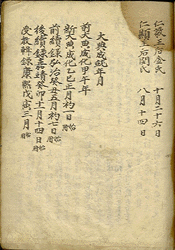 仁敬王后金氏 十月二十六日
仁顯王后閔氏 八月十四日
大典成就年月
前大典成化甲午年
新大典成化乙巳正月初一日始用
前續錄弘治癸丑五月初七日始用
後續錄嘉靖癸卯十一月十四日始用
受教輯錄康熙戊寅三月始用